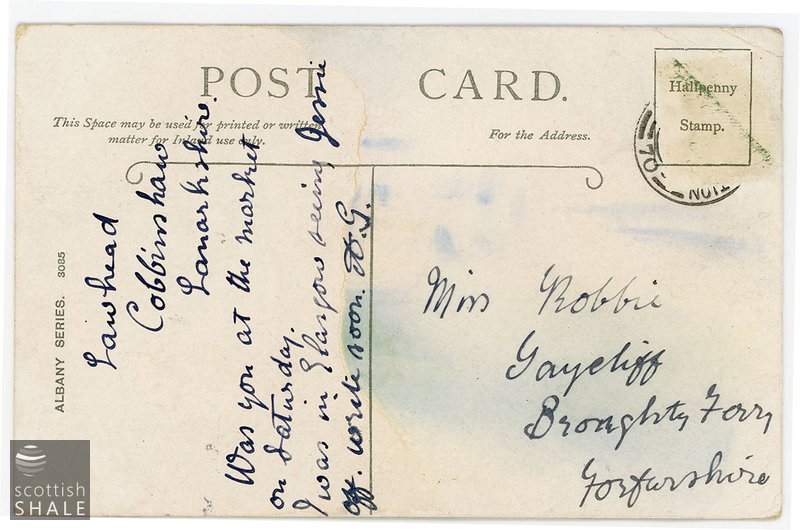 POST CARD.
This Space may be used for printed or written
matter for Inland use only.
For the Address.
Halfpenny
Stamp.
70
ALBANY SERIES. 3085
Lawhead
Cobbinshaw
Lanarkshire.
Was you at the market
on Saturday.
I was in Glasgow seeing Jessie
off. write soon.
Miss Robbie
Gaycliff
Broughty Ferry
Forfarshire
scottish
SHALE